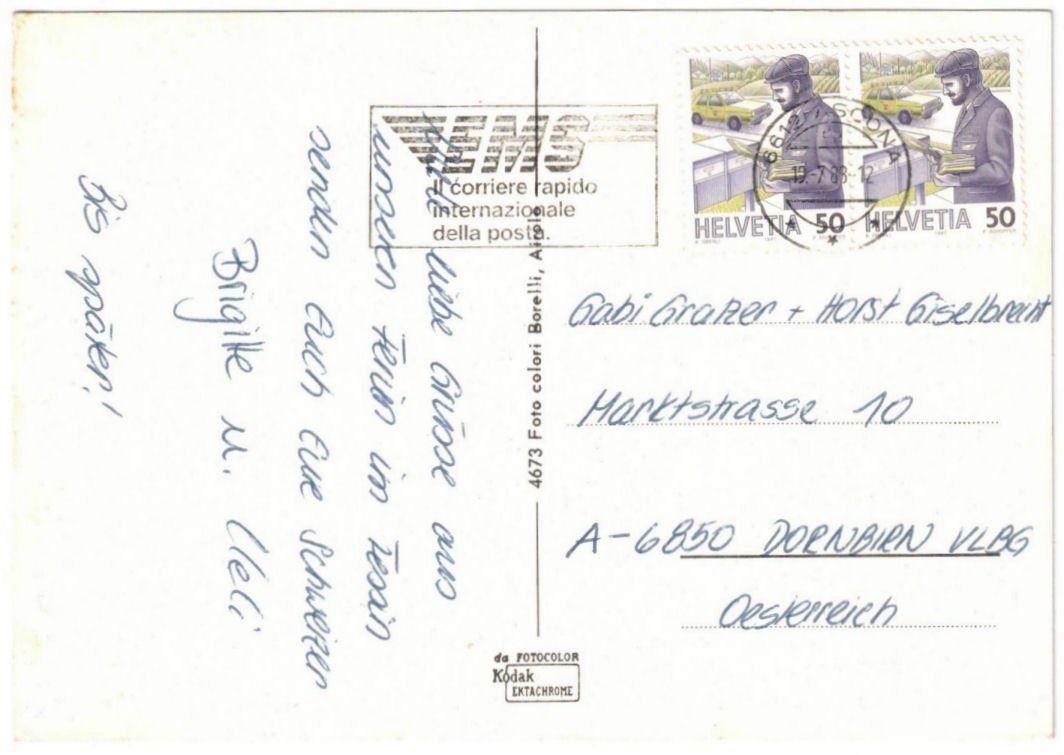 EMS
Il corriere rapido
internazionale
della posta.
6612 ASCONA
19.-7.88-12
HELVETIA 50
HELVETIA 50
liebe Grüsse aus
unseren Ferien im Tessin
senden Euch Eue Schweizer
Brigitte u. Ueli
Bis später!
4673 Foto colori Borelli, Airolo
Gabi Gratzer + Horst Giselbrecht
Marktstrasse 10
A-6850 DORNBIRN VLBG
Oesterreich
da FOTOCOLOR
Kodak
EKTACHROME